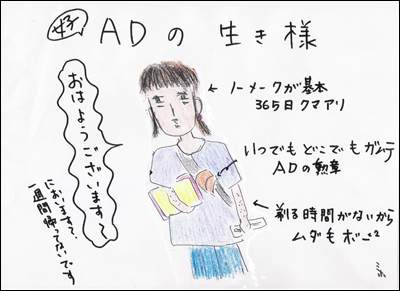 女子 ADの生き様
おはようございます〜
においます?
一週間帰ってないです
ノーメークが基本
365日クマアリ
いつでもどこでもガムテ
ADの勲章
剃る時間がないから
ムダ毛ボー²